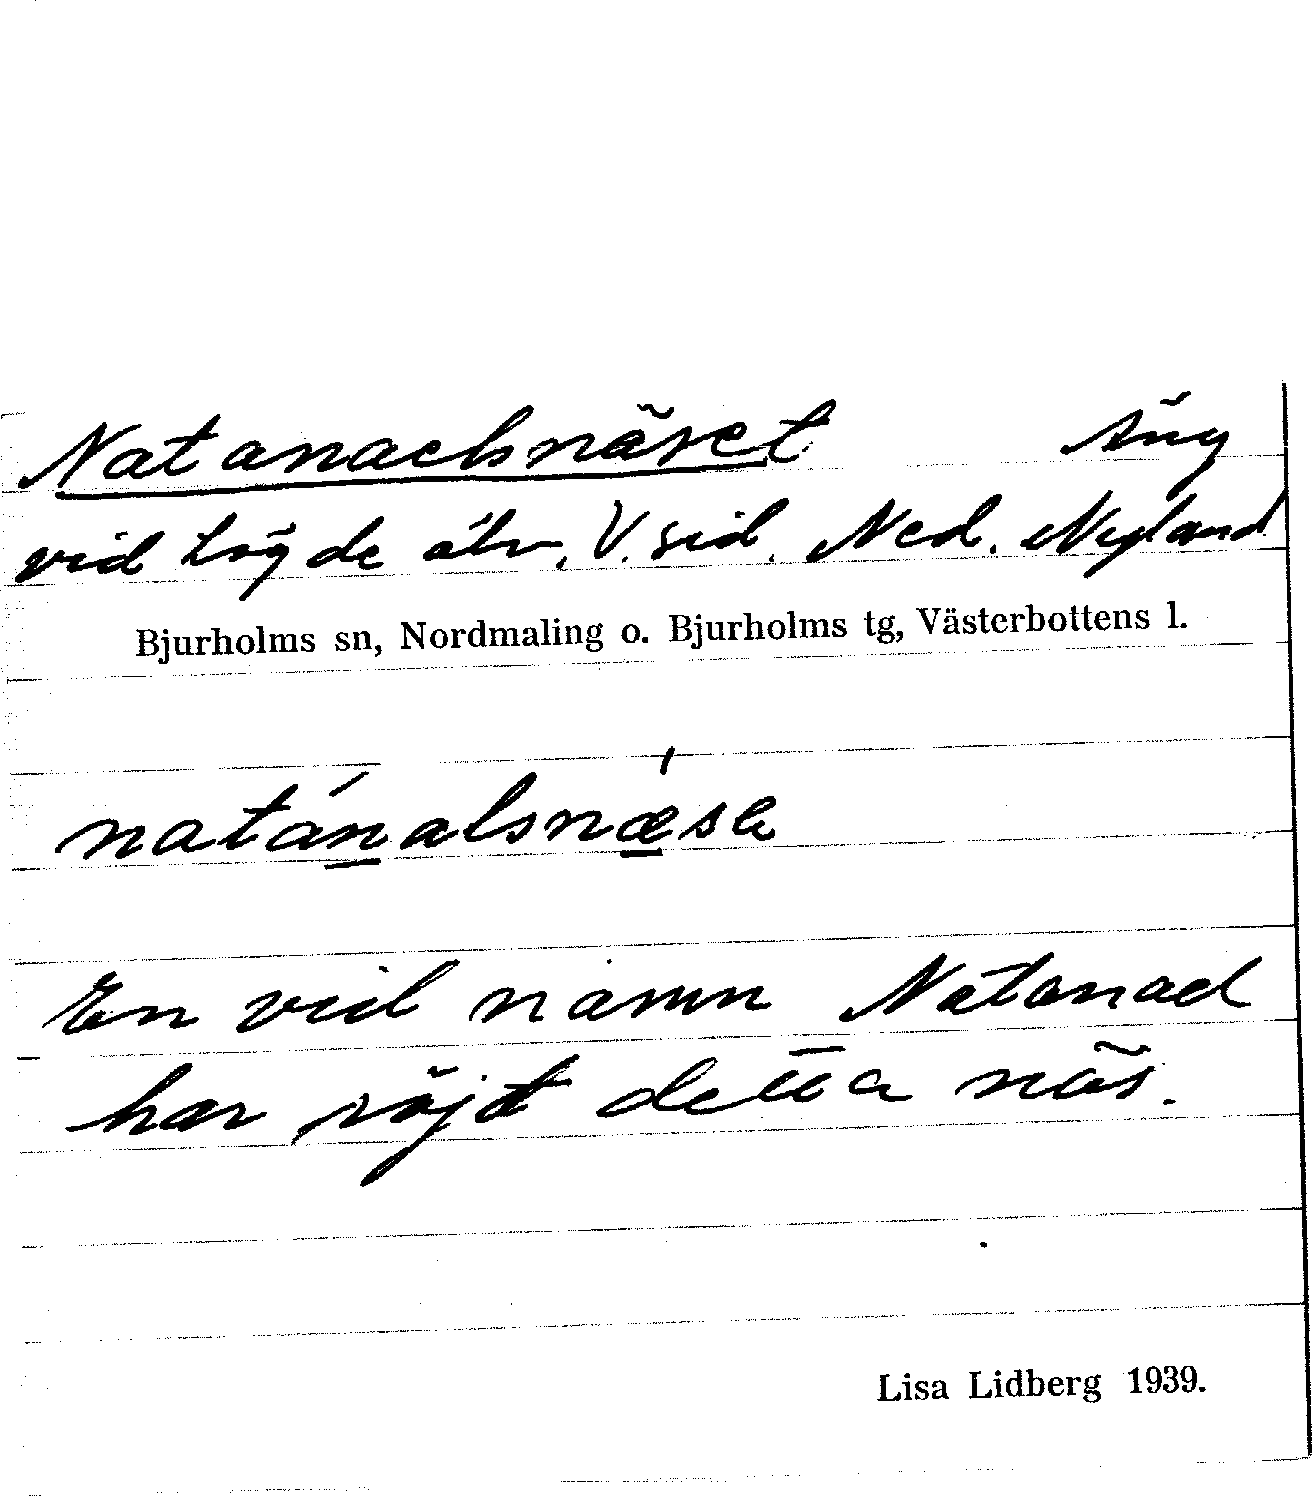 Natanaelsnäset Äng
vid Lögde älv, V. sid. Ned. Nyland
Bjurholms sn, Nordmaling o. Bjurholms tg, Västerbottens l.
natánalsnæse
En vid namn Natanael
har röjt detta näs.
Lisa Lidberg 1939.